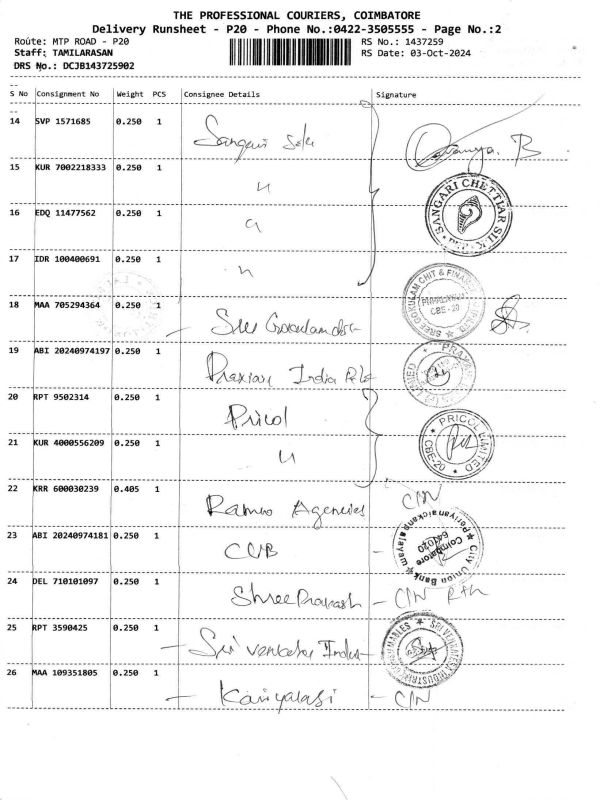 THE PROFESSIONAL COURIERS, COIMBATORE
Delivery Runsheet - P20 - Phone No.:0422-3505555 - Page No.:2
Route: MTP ROAD - P20 RS No.: 1437259
Staff: TAMILARASAN RS Date: 03-Oct-2024
DRS No.: DCJB143725902
S No Consignment No Weight PCS Consignee Details Signature
14 SVP 1571685 0.250 1
15 KUR 7002218333 0.250 1 "
SANGARI CHETTIAR SILK
16 EDQ 11477562 0.250 1 "
17 IDR 100400691 0.250 1 "
SREE GOKULAM CHIT & FINANCE
CBE-20
18 MAA 705294364 0.250 1 - Sree
19 ABI 20240974197 0.250 1 India
20 RPT 9502314 0.250 1 Pricol
PRICOL LIMITED
CBE-20
21 KUR 4000556209 0.250 1 "
22 KRR 600030239 0.405 1 Agencies C/N
23 ABI 20240974181 0.250 1 CUB -
City Union Bank
Periyanaickanpalayam
Coimbatore
641020
24 DEL 710101097 0.250 1 Shree Prakash - C/N Rth
25 RPT 3590425 0.250 1 - Sri
SRI VENKATESA INDUSTRIES
26 MAA 109351805 0.250 1 - - C/N